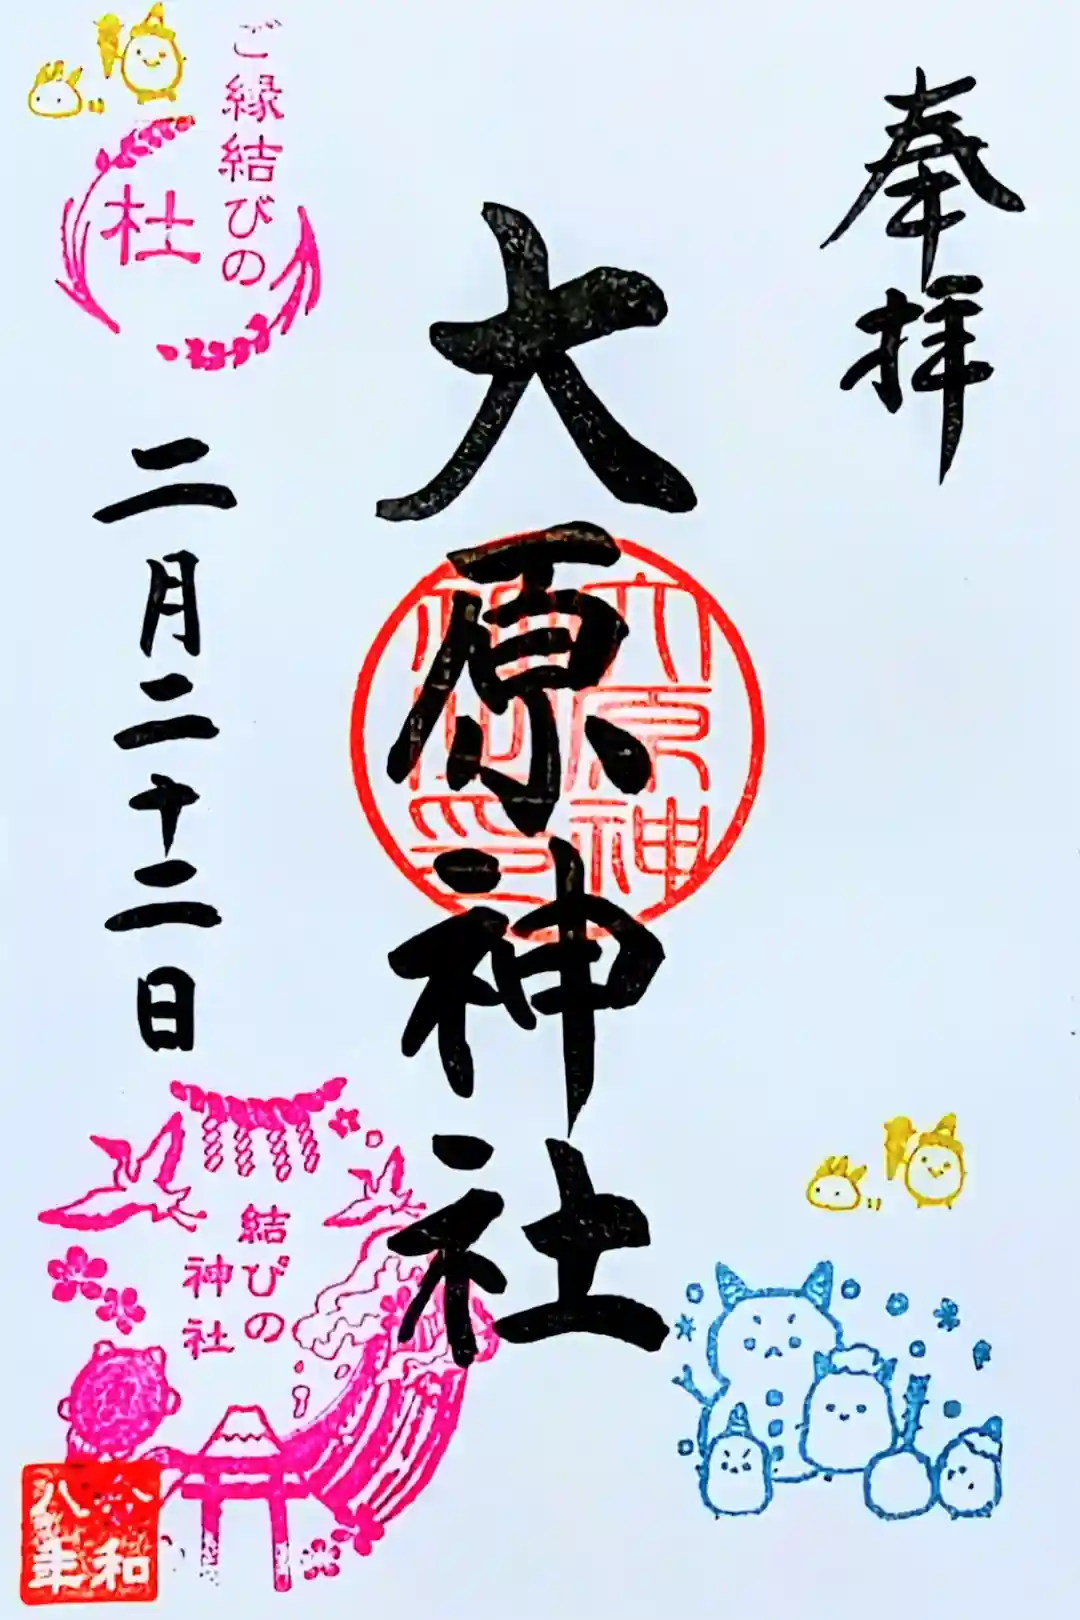 奉拝
大原神社
大原神社之印
ご縁結びの
杜
二月二十二日
結びの
神社
令和
八年